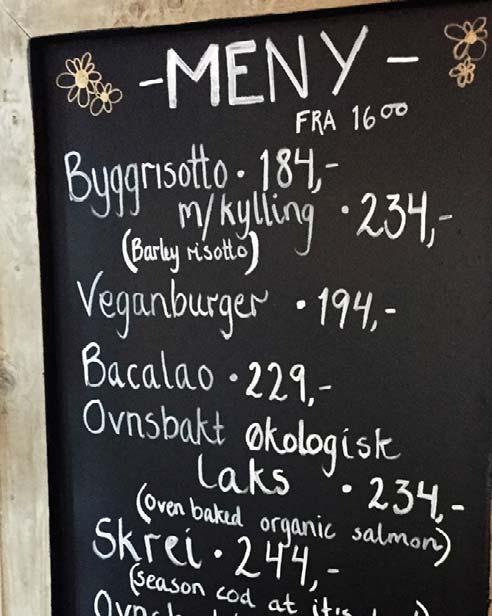 -MENY-
FRA 16⁰⁰
Byggrisotto · 184,-
m/kylling · 234,-
(Barley risotto)
Veganburger · 194,-
Bacalao · 229,-
Ovnsbakt økologisk
laks · 234,-
(oven baked organic salmon)
Skrei · 244,-
(season cod at it's